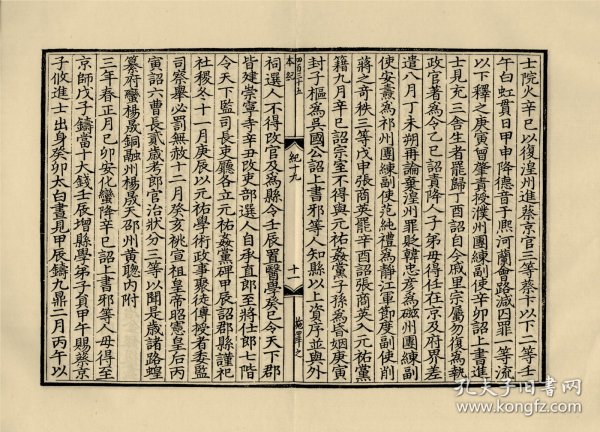 士院火辛巳以復湟州進蔡京官三等蔡卞以下二等壬
午白虹貫日甲申降德音于熙河蘭會路減囚罪一等流
以下釋之庚寅曾肇責授濮州團練副使辛卯詔上書進
士見充三舍生者罷歸丁酉詔自今戚里宗屬勿復爲執
政官著爲令乙巳詔責降人子弟毋得任在京及府界差
遣八月丁未朔再論棄湟州罪貶韓忠彥爲磁州團練副
使安燾爲祁州團練副使范純禮爲靜江軍節度副使削
蔣之奇秩三等戊申張商英罷辛酉詔張商英入元祐黨
籍九月辛巳詔宗室不得與元祐姦黨子孫爲昏姻庚寅
封子樞爲吳國公詔上書邪等人知縣以上資序並與外
四百三十五
本紀
紀十九
十一
祠選人不得改官及爲縣令壬辰置醫學癸巳令天下郡
皆建崇寧寺辛丑改吏部選人自承直郎至將仕郎七階
令天下監司長吏廳各立元祐姦黨碑甲辰詔郡縣謹祀
社稷冬十一月庚辰以元祐學術政事聚徒傳授者委監
司察舉必罰無赦十二月癸亥祧宣祖皇帝昭憲皇后丙
寅詔六曹長貳歲考郎官治狀分三等以聞是歲諸路蝗
纂府蠻楊晟銅融州楊晟天邵州黃聰內附
三年春正月己卯安化蠻降辛巳詔上書邪等人毋得至
京師戊子鑄當十大錢壬辰增縣學弟子員甲午賜蔡京
子攸進士出身癸卯太白晝見甲辰鑄九鼎二月丙午以
孔夫子旧书网
www.kongfz.com